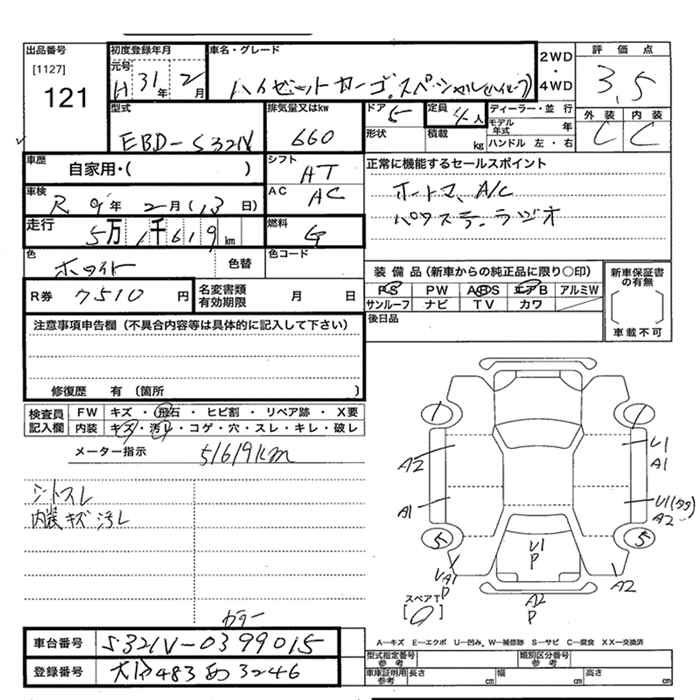 出品番号
[1127]
121
初度登録年月
元号
H 31年 2月
車名・グレード
ハイゼットカーゴ スペシャル(ハイルーフ)
2WD
・
4WD
評価点
3.5
外装 内装
C C
型式
EBD-S321V
排気量又はkw
660
ドア
5
形状
定員
4人
積載
kg
ディーラー・並行
モデル年式 年
ハンドル 左・右
車歴
自家用・( )
シフト
AT
車検
R 9年 2月(13日)
AC
AC
走行
5万1千619km
燃料
G
色
ホワイト
色替
色コード
R券 7510円
名変書類有効期限 月 日
正常に機能するセールスポイント
オートマ、A/C
パワステ、ラジオ
装備品(新車からの純正品に限り○印)
PS PW ABS エアB アルミW
サンルーフ ナビ TV カワ
新車保証書の有無
車載不可
後日品
注意事項申告欄(不具合内容等は具体的に記入して下さい)
修復歴 有(箇所 )
検査員記入欄
FW キズ・飛石・ヒビ割・リペア跡・X要
内装 キズ・汚レ・コゲ・穴・スレ・キレ・破レ
メーター指示 51619km
シートスレ
内装キズ汚レ
A2
A1
U1
A1
U1(タタ)
A2
5
5
U1
P
UA1
P
A2
A2
P
スペアT
[0]
カラー
車台番号 S321V-0399015
登録番号 大分483あ3246
A-キズ E-エクボ U-凹み、W-補修跡 S-サビ C-腐食 XX-交換済
型式指定番号 参考 類別区分番号 参考
車庫証明用 参考 長さ cm 幅 cm 高さ cm